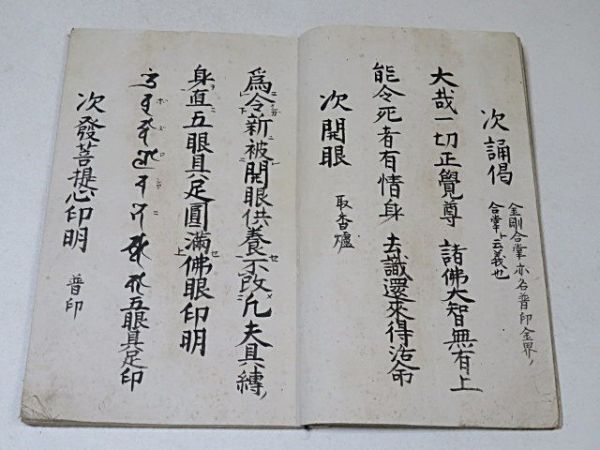 次誦偈 金剛合掌亦名普印金界ノ
合掌ト云義也
大哉一切正覺尊 諸佛大智無有上
能令死者有情身 去識還來得活命
次開眼 取香爐
爲令新被開眼供養不改凡夫具縛ノ
身直五眼具足圓滿佛眼印明
五眼具足印
次發菩提心印明 普印